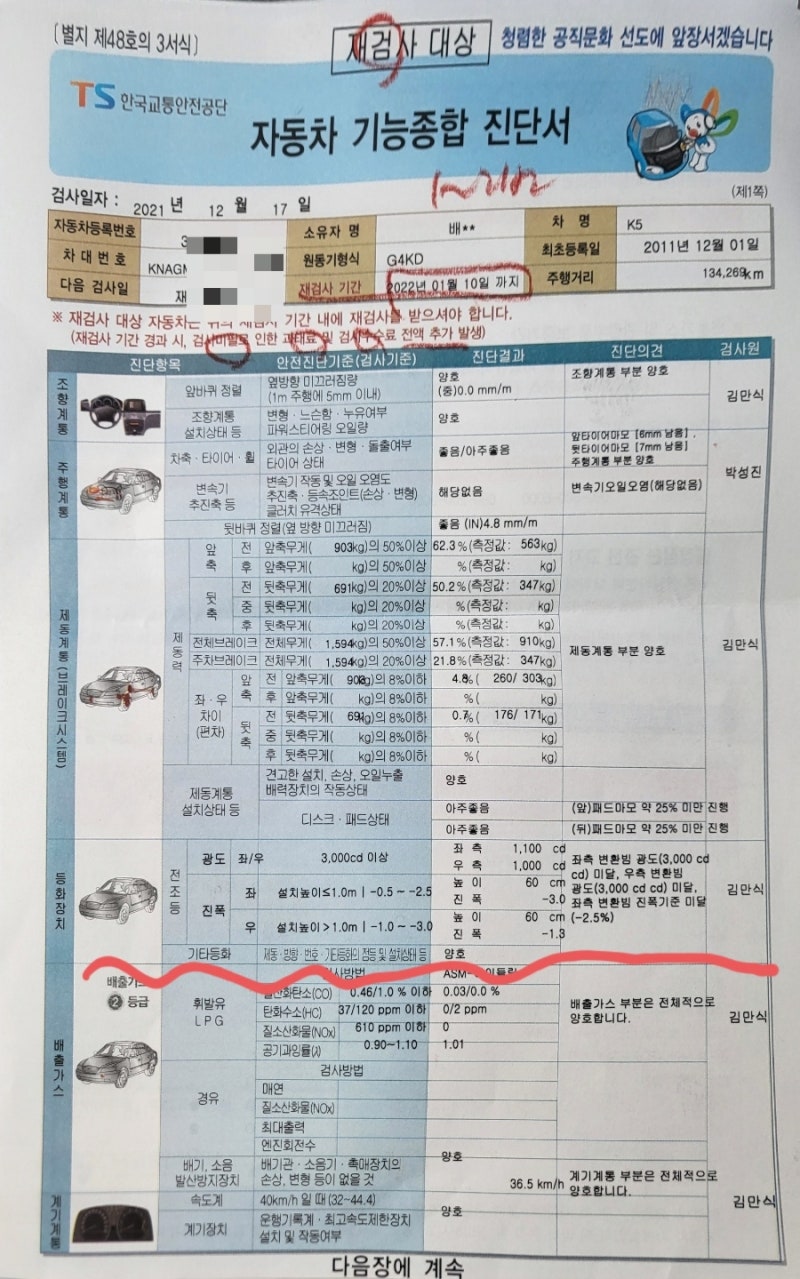 [별지 제48호의 3서식]
재검사 대상
청렴한 공직문화 선도에 앞장서겠습니다
TS 한국교통안전공단
자동차 기능종합 진단서
(제1쪽)
검사일자 : 2021 년 12 월 17 일
자동차등록번호 3 소유자 명 배** 차 명 K5
차 대 번 호 KNAGM 원동기형식 G4KD 최초등록일 2011년 12월 01일
다음 검사일 재 재검사 기간 2022년 01월 10일 까지 주행거리 134,269km
※ 재검사 대상 자동차는 위의 재검사 기간 내에 재검사를 받으셔야 합니다.
(재검사 기간 경과 시, 검사미필로 인한 과태료 및 검사수수료 전액 추가 발생)
진단항목 안전진단기준(검사기준) 진단결과 진단의견 검사원
조향계통
앞바퀴 정렬 옆방향 미끄러짐량 (1m 주행에 5mm 이내) 양호 (중)0.0 mm/m 조향계통 부분 양호 김만식
조향계통 설치상태 등 변형·느슨함·누유여부 파워스티어링 오일량 양호
주행계통
차축·타이어·휠 외관의 손상·변형·돌출여부 타이어 상태 좋음/아주좋음 앞타이어마모 [6mm 남음], 뒷타이어마모 [7mm 남음] 주행계통 부분 양호 박성진
변속기 추진축 등 변속기 작동 및 오일 오염도 추진축·등속조인트(손상·변형) 클러치 유격상태 해당없음 변속기오일오염(해당없음)
뒷바퀴 정렬(옆 방향 미끄러짐) 좋음 (IN)4.8 mm/m
제동계통(브레이크시스템)
제동력
앞축 전 앞축무게( 903kg)의 50%이상 62.3 %(측정값: 563kg)
후 앞축무게( kg)의 50%이상 %(측정값: kg)
뒷축 전 뒷축무게( 691kg)의 20%이상 50.2 %(측정값: 347kg)
중 뒷축무게( kg)의 20%이상 %(측정값: kg)
후 뒷축무게( kg)의 20%이상 %(측정값: kg)
전체브레이크 전체무게( 1,594kg)의 50%이상 57.1 %(측정값: 910kg) 제동계통 부분 양호 김만식
주차브레이크 전체무게( 1,594kg)의 20%이상 21.8 %(측정값: 347kg)
좌·우 차이 (편차)
앞축 전 앞축무게( 903kg)의 8%이하 4.8%( 260/ 303kg)
후 앞축무게( kg)의 8%이하 %( kg)
뒷축 전 뒷축무게( 691kg)의 8%이하 0.7%( 176/ 171kg)
중 뒷축무게( kg)의 8%이하 %( kg)
후 뒷축무게( kg)의 8%이하 %( kg)
제동계통 설치상태 등 견고한 설치, 손상, 오일누출 배력장치의 작동상태 양호
디스크·패드상태 아주좋음 (앞)패드마모 약 25% 미만 진행
아주좋음 (뒤)패드마모 약 25% 미만 진행
등화장치
전조등
광도 좌/우 3,000cd 이상 좌 측 1,100 cd
우 측 1,000 cd
진폭 좌 설치높이≤1.0m | -0.5 ~ -2.5 높 이 60 cm
진 폭 -3.0
우 설치높이>1.0m | -1.0 ~ -3.0 높 이 60 cm
진 폭 -1.3
좌측 변환빔 광도(3,000 cd
cd) 미달, 우측 변환빔
광도(3,000 cd cd) 미달,
좌측 변환빔 진폭기준 미달
(-2.5%)
김만식
기타등화 제동·방향·번호·기타등화의 점등 및 설치상태 등 양호
배출가스
② 등급
휘발유 LPG
일산화탄소(CO) 0.46/1.0 % 이하 0.03/0.0 % 배출가스 부분은 전체적으로 양호합니다. 김만식
탄화수소(HC) 37/120 ppm 이하 0/2 ppm
질소산화물(NOx) 610 ppm 이하 0
공기과잉률(λ) 0.90~1.10 1.01
경유
검사방법
매연
질소산화물(NOx)
최대출력
엔진회전수
배기, 소음 발산방지장치 배기관·소음기·촉매장치의 손상, 변형 등이 없을 것 양호
계기계통
속도계 40km/h 일 때 (32~44.4) 36.5 km/h 계기계통 부분은 전체적으로 양호합니다. 김만식
계기장치 운행기록계·최고속도제한장치 설치 및 작동여부 양호
다음장에 계속